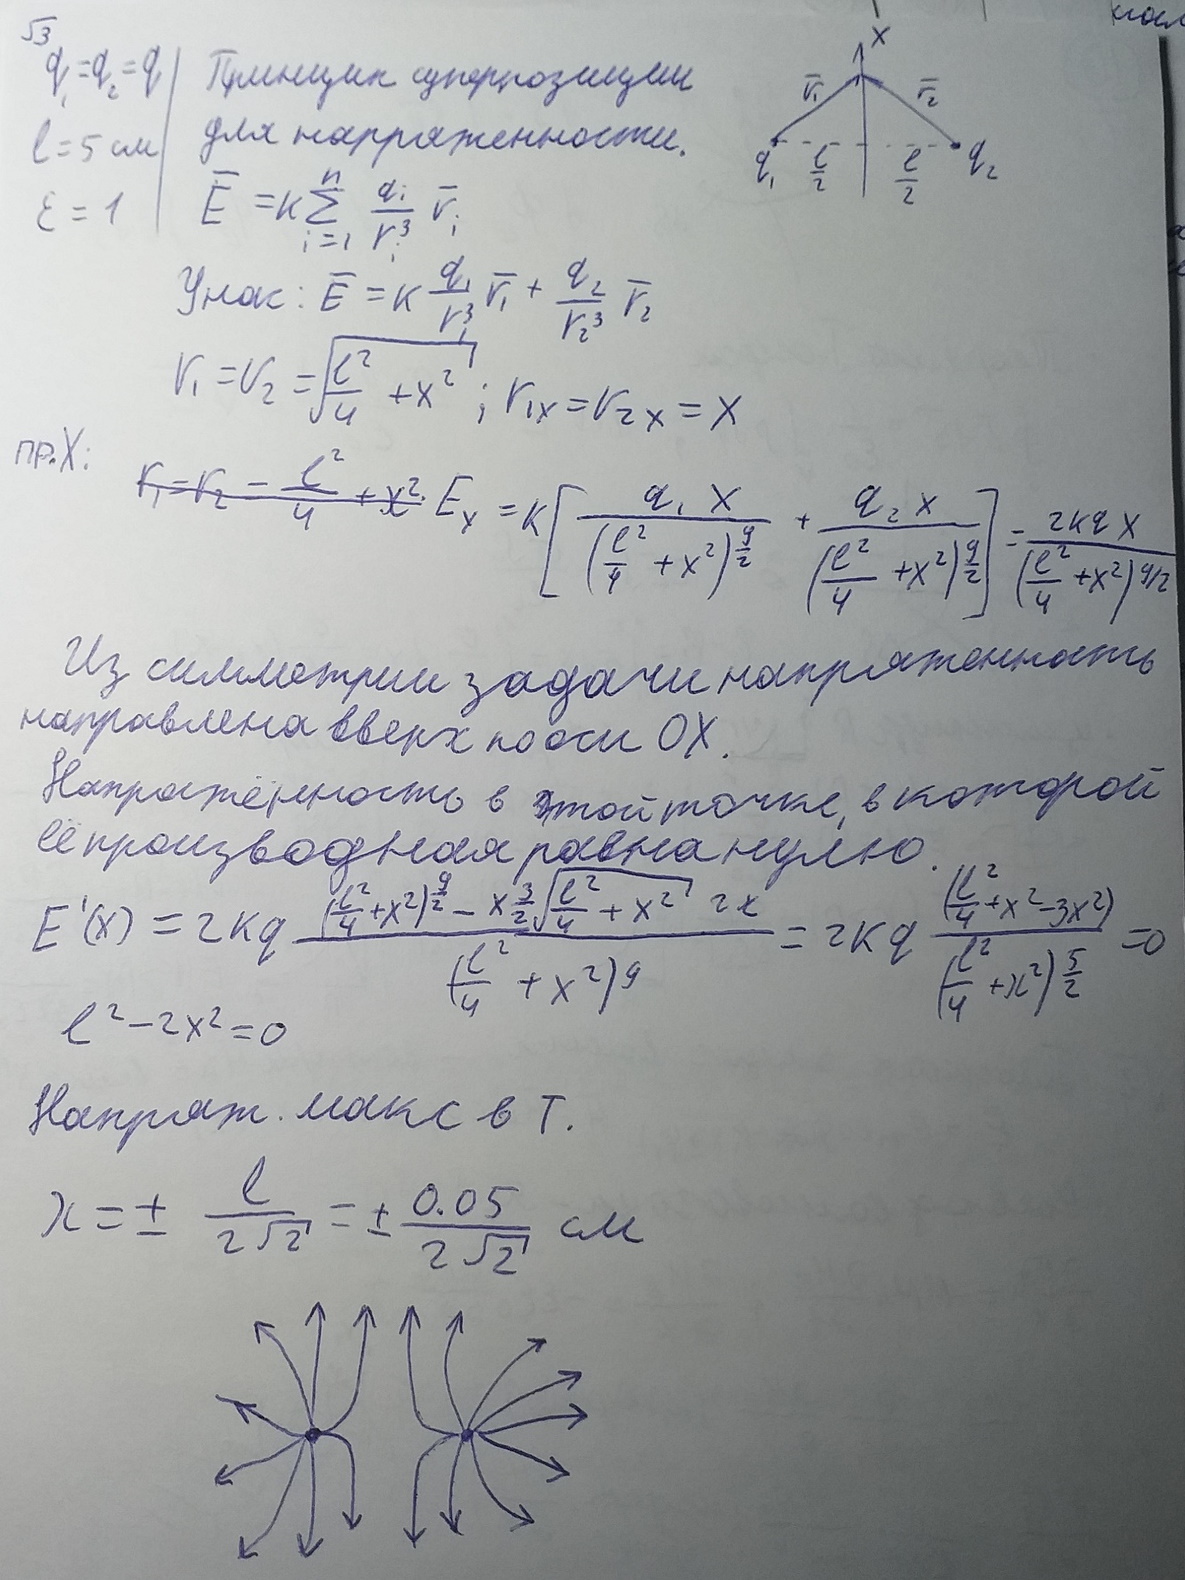 √3
q₁=q₂=q
l=5 см
ε=1
Принцип суперпозиции
для напряженности.
Ē = k Σ_{i=1}^{n} qᵢ/rᵢ³ r̄ᵢ
X
r̄₁ r̄₂
q₁ l/2 l/2 q₂
У нас: Ē = k q₁/r₁³ r̄₁ + q₂/r₂³ r̄₂
r₁=r₂=√(l²/4 + x²) ; r₁ₓ=r₂ₓ=x
пр.X: r₁=r₂=l²/4+x² Eₓ = k[q₁x/(l²/4+x²)^(9/2) + q₂x/(l²/4+x²)^(9/2)] = 2kqx/(l²/4+x²)^(9/2)
Из симметрии задачи напряженность
направлена вверх по оси OX.
Напряжённость в этой точке, в которой
её производная равна нулю.
E'(x) = 2kq ((l²/4+x²)^(9/2) - x 3/2 √(l²/4+x²) 2x)/(l²/4+x²)^9 = 2kq (l²/4+x²-3x²)/(l²/4+x²)^(5/2) =0
l²-2x²=0
Напряж. макс в т.
x = ± l/(2√2) = ± 0.05/(2√2) см